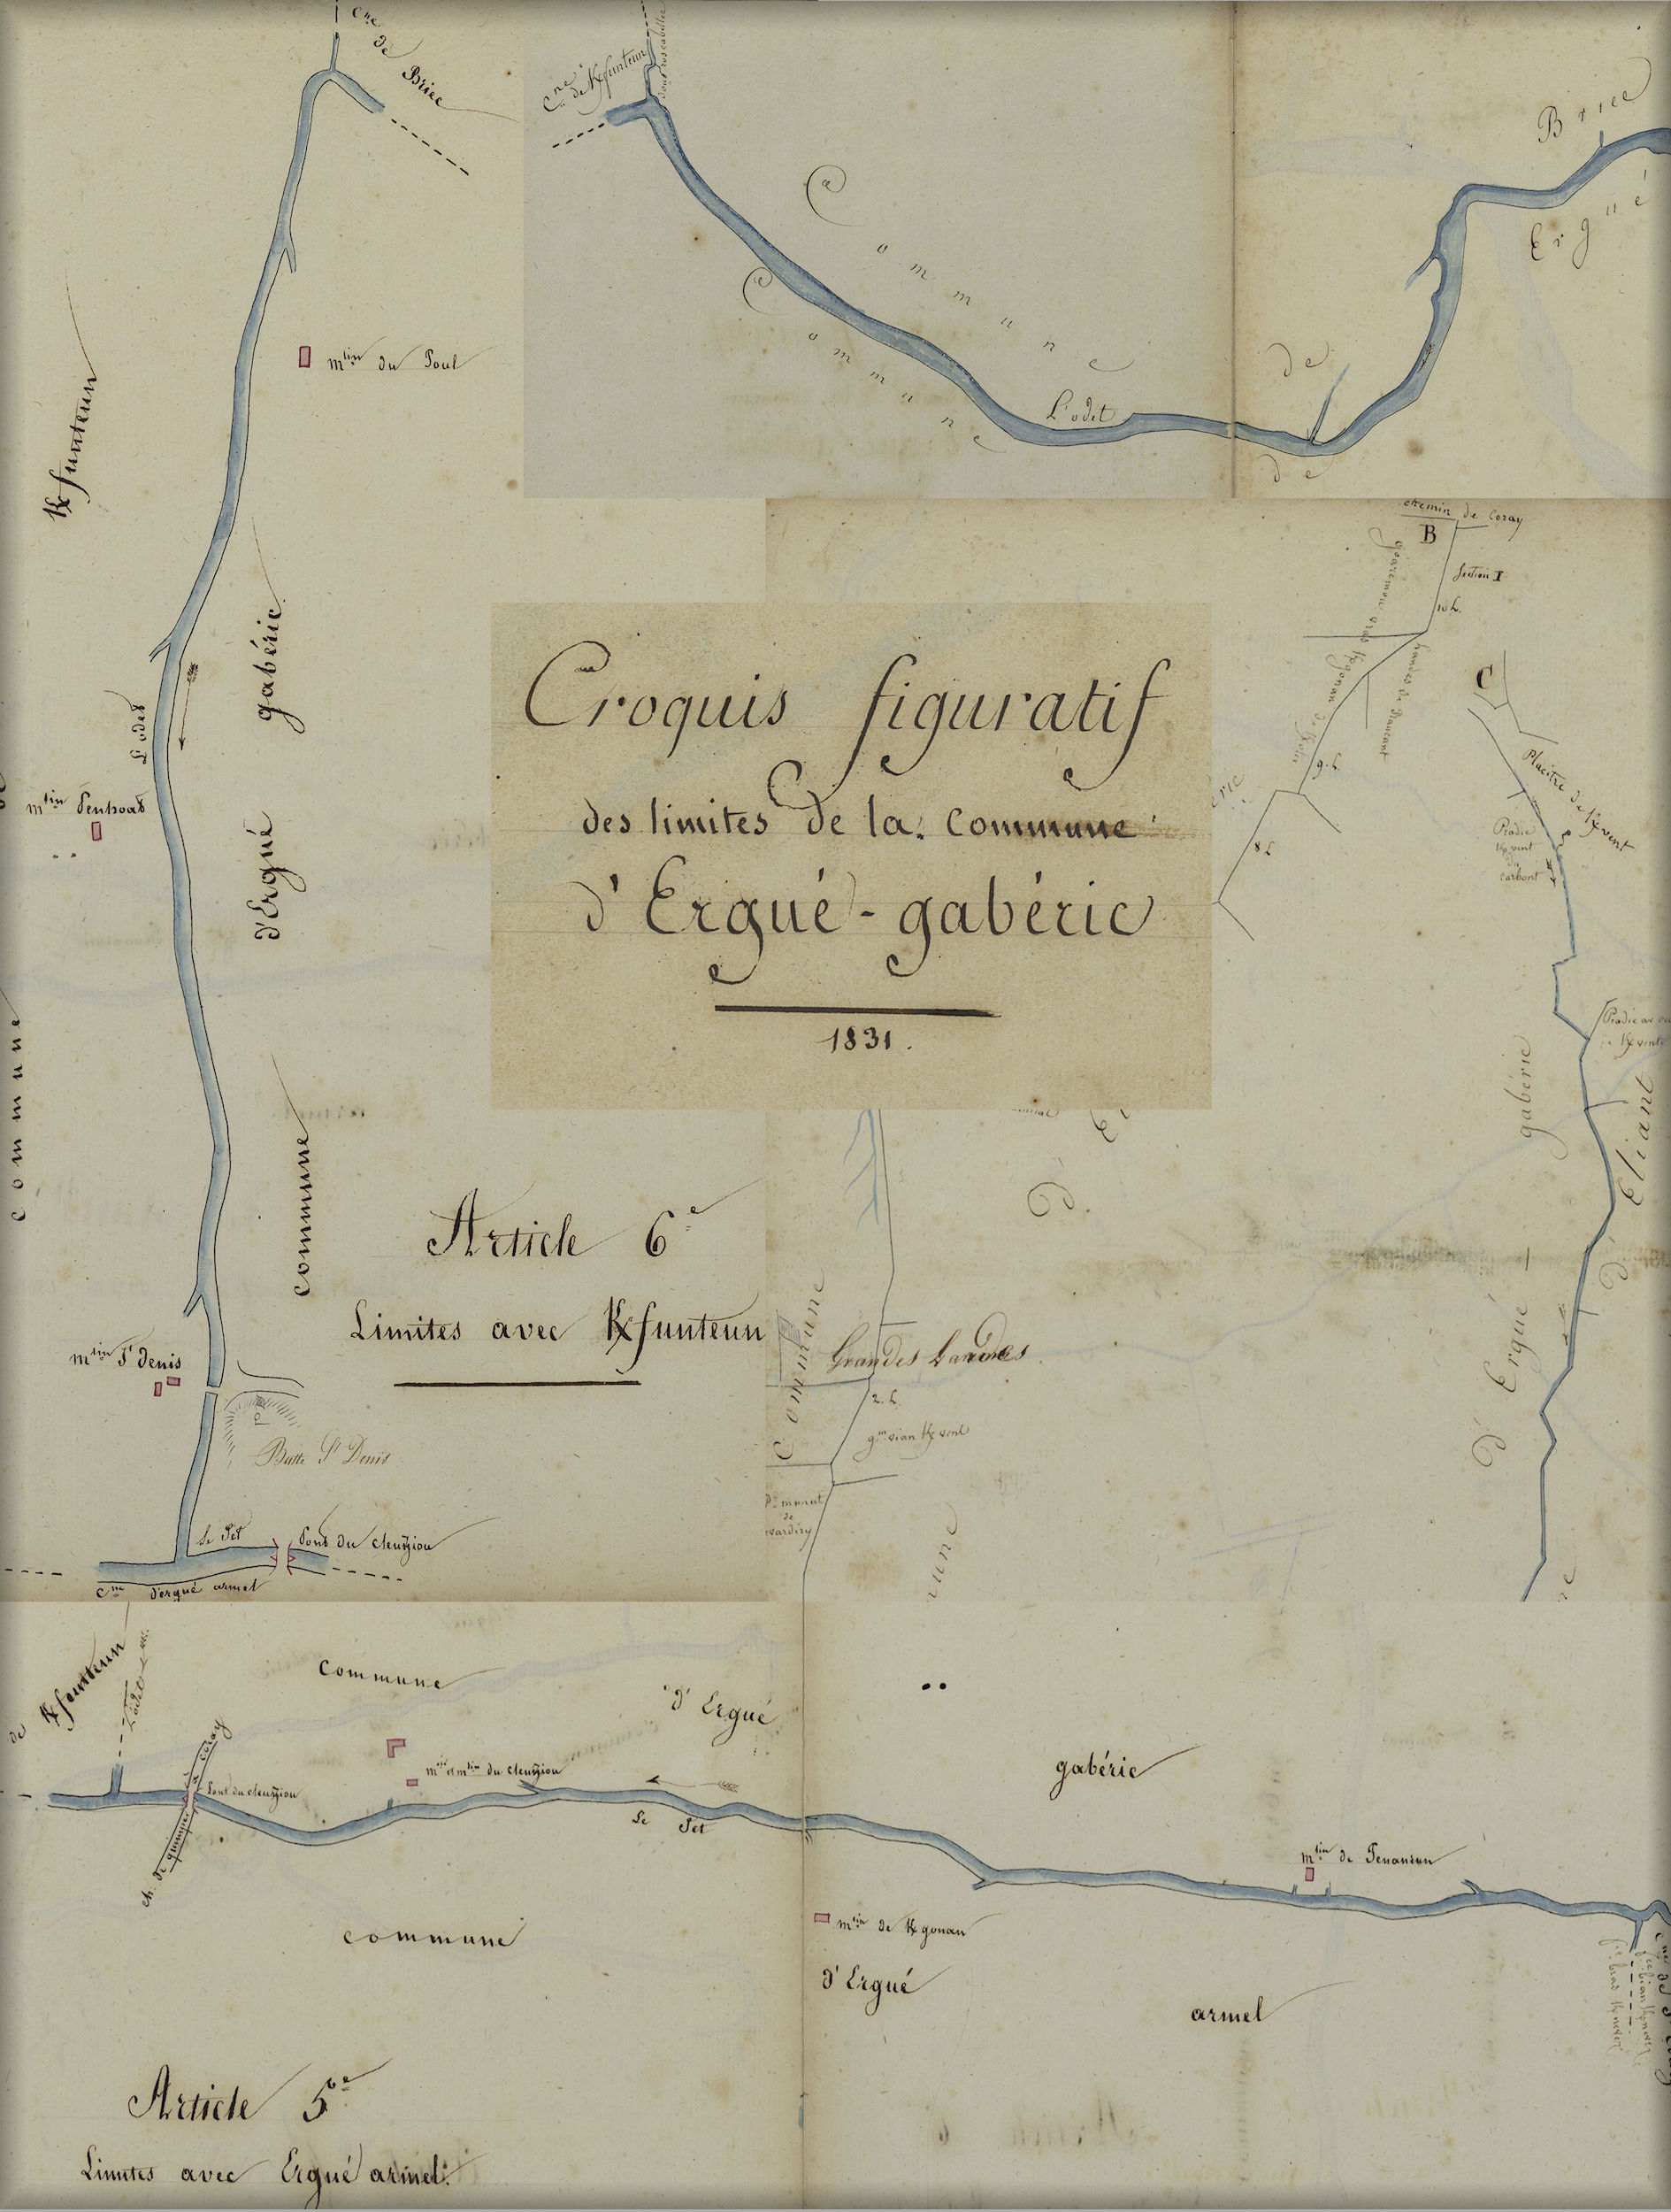 Croquis figuratif
des limites de la Commune
d'Ergué-gabéric
1831.
Cne de Briec
Kfunteun
mlin du Poul
gabéric
L'odet
mlin Penhoat
d'Ergué
commune
commune
mlin St denis
Butte St Denis
Le Jet
Pont du cleuziou
Cne d'ergué armel
Article 6e
Limites avec Kfunteun
Cne de Kfunteun
Commune
Commune
L'odet
de
de
Briec
Ergué
chemin de Coray
B
Section I
10 L.
9. L.
8 L
C
Placitre de Kvent
Pradic
Kvent
du
carbont
gabéric
d'Ergué -
d'Eliant
Commune
Grandes Landes
2. L.
gm vian Kvent
de Kfunteun
L'odet
commune
d'Ergué
gabéric
coray
Pont du cleuziou
ch. de quimper
mlin du cleuziou
Le Jet
mlin de Penanrun
mlin de Kgonan
commune
d'Ergué
armel
Article 5e
Limites avec Ergué armel.